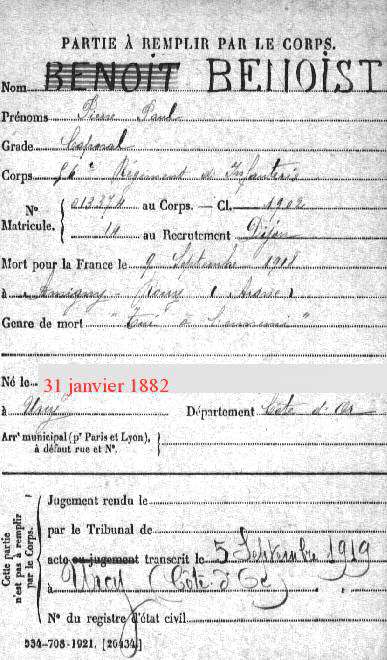 PARTIE À REMPLIR PAR LE CORPS.
Nom BENOIT BENOIST
Prénoms Pierre Paul
Grade Caporal
Corps 56e Régiment d'Infanterie
No Matricule. 013374 au Corps. — Cl. 1902
10 au Recrutement Dijon
Mort pour la France le 9 Septembre 1918
à Amigny-Rouy (Aisne)
Genre de mort "Tué à l'ennemi"
Né le 31 janvier 1882
à Urcy Département Côte d'Or
Arrt municipal (pr Paris et Lyon),
à défaut rue et No.
Cette partie n'est pas à remplir par le Corps.
Jugement rendu le
par le Tribunal de
acte ou jugement transcrit le 5 Septembre 1919
à Urcy (Côte-d'Or)
No du registre d'état civil
534-708-1921. [26434.]